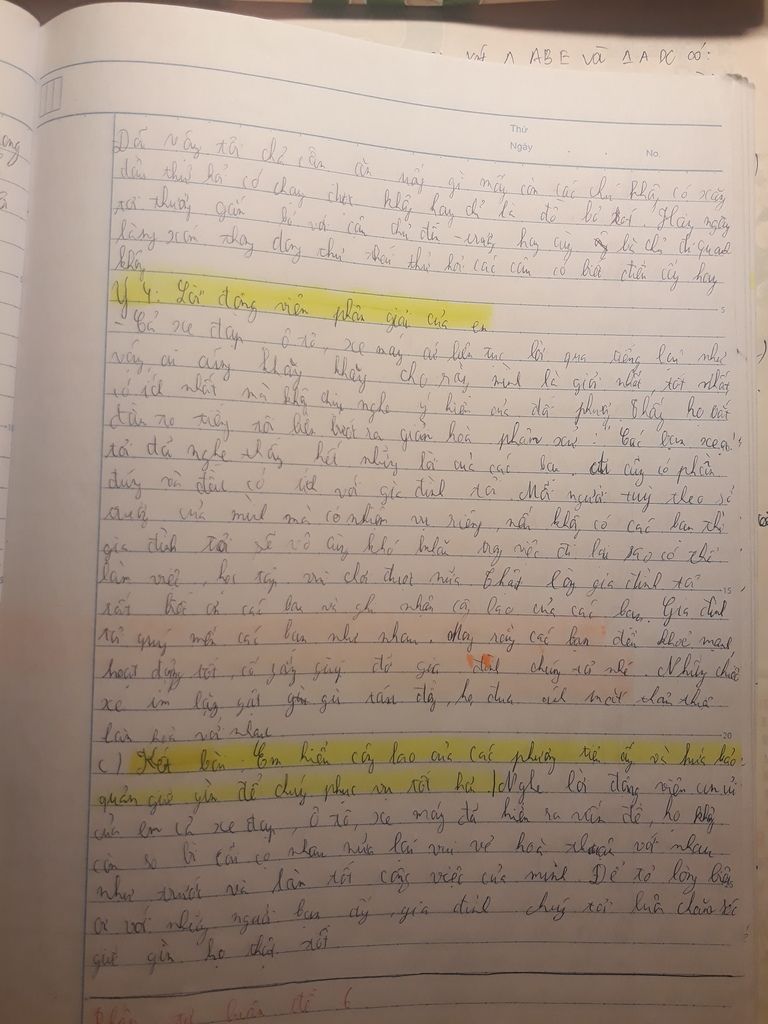 ABE và Δ ADC có:
Thứ
Ngày
No.
Dẫu vậy tôi chả cần ăn uống gì mấy còn các chú không có xăng
dầu thử hỏi có chạy được không hay chỉ là đồ bỏ
tôi thường gắn bó với cậu chủ đến trường hay cùng bà chủ đi quanh
làng xóm thay thử hỏi các cậu có biết điều ấy hay
không
Ý 4: Lời động viên phân giải của em
- Cả xe đạp, ô tô, xe máy cứ liên tục lời qua tiếng lại như
vậy, ai cũng khăng khăng cho rằng mình là giỏi nhất, tốt nhất,
có ích nhất mà không chịu nghe ý kiến của đối phương. Thấy họ bắt
đầu to tiếng tôi liền bước ra giảng hoà phân xử: "Các bạn xe ơi
tôi đã nghe thấy hết những lời của các bạn. ai cũng có phần
đúng và đều có ích với gia đình tôi. Mỗi người tuỳ theo sở
trường của mình mà có nhiệm vụ riêng, nếu không có các bạn thì
gia đình tôi sẽ vô cùng khó khăn trong việc đi lại sao có thể
làm việc, học tập, vui chơi được nữa. Thật lòng gia đình tôi
rất biết ơn các bạn và ghi nhận công lao của các bạn. Gia đình
tôi quý mến các bạn như nhau. Mong rằng các bạn đều khoẻ mạnh
hoạt động tốt, cố gắng giúp đỡ gia đình chúng tôi nhé. Những chiếc
xe im lặng gật gù ra vẻ, họ đưa ánh mắt thân thiện
làm hoà với nhau.
c) Kết bài: Em hiểu công lao của các phương tiện ấy và hứa bảo
quản giữ gìn để chúng phục vụ tốt hơn / Nghe lời động viên an ủi
của em cả xe đạp, ô tô, xe máy đã hiểu ra vấn đề, họ không
còn so bì cãi cọ nhau nữa lại vui vẻ hoà thuận với nhau
như trước và làm tốt công việc của mình. Để tỏ lòng biết
ơn với những người bạn ấy, gia đình chúng tôi luôn chăm sóc
giữ gìn họ thật tốt
đề 6